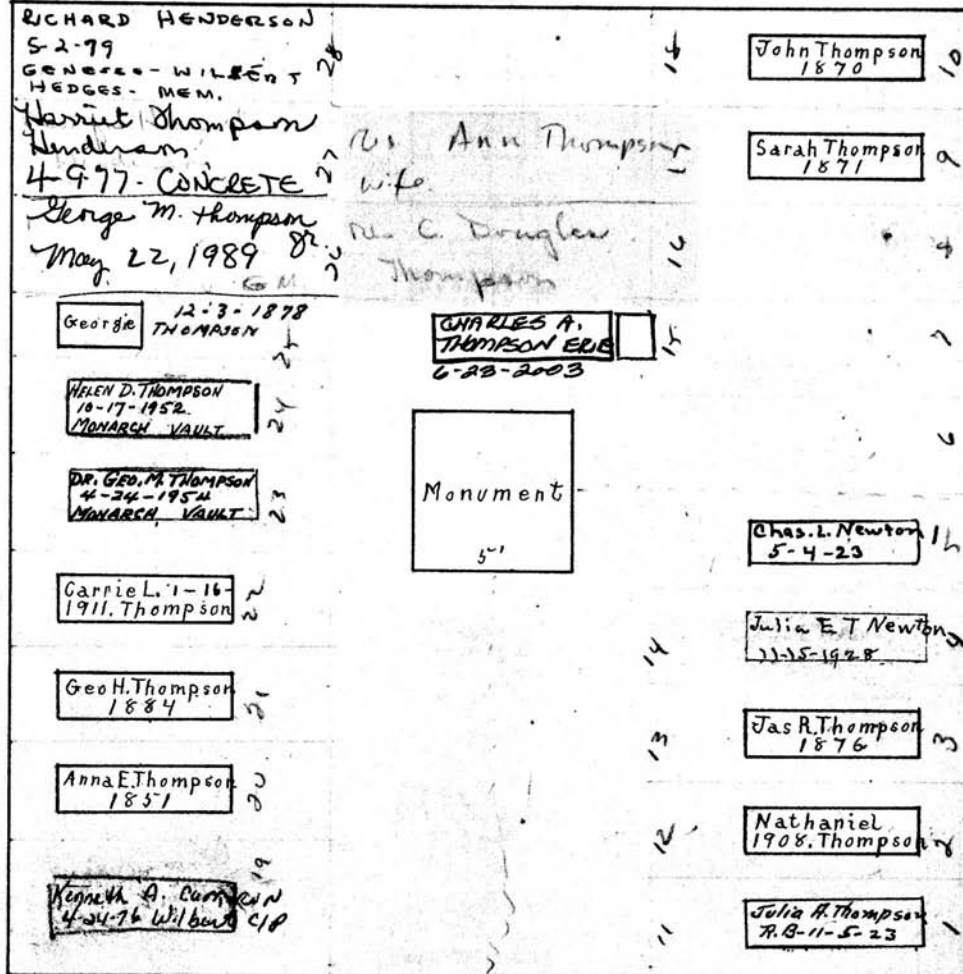 RICHARD HENDERSON
5-2-79
GENESEE - WILBERT
HEDGES - MEM.
28
Harriet Thompson
Henderson
4-9-97 - CONCRETE
27
George M. Thompson
Jr.
May 22, 1989
26
G M
Georgie
12-3-1878
THOMPSON
25
HELEN D. THOMPSON
10-17-1952
MONARCH VAULT
24
DR. GEO. M. THOMPSON
4-24-1954
MONARCH VAULT
23
Carrie L. 1-16-
1911. Thompson
22
Geo H. Thompson
1884
21
Anna E. Thompson
1851
20
19
Kenneth A.
4-24-76 Wilbert
18
Ann Thompson
wife
17
C. Douglas
Thompson
16
CHARLES A.
THOMPSON ERIE
6-23-2003
15
Monument
5'
14
13
12
11
John Thompson
1870
10
Sarah Thompson
1871
9
8
7
6
Chas. L. Newton
5-4-23
Julia E T Newton
11-15-1928
4
Jas R. Thompson
1876
3
Nathaniel
1908. Thompson
2
Julia A. Thompson
R.B-11-5-23
1